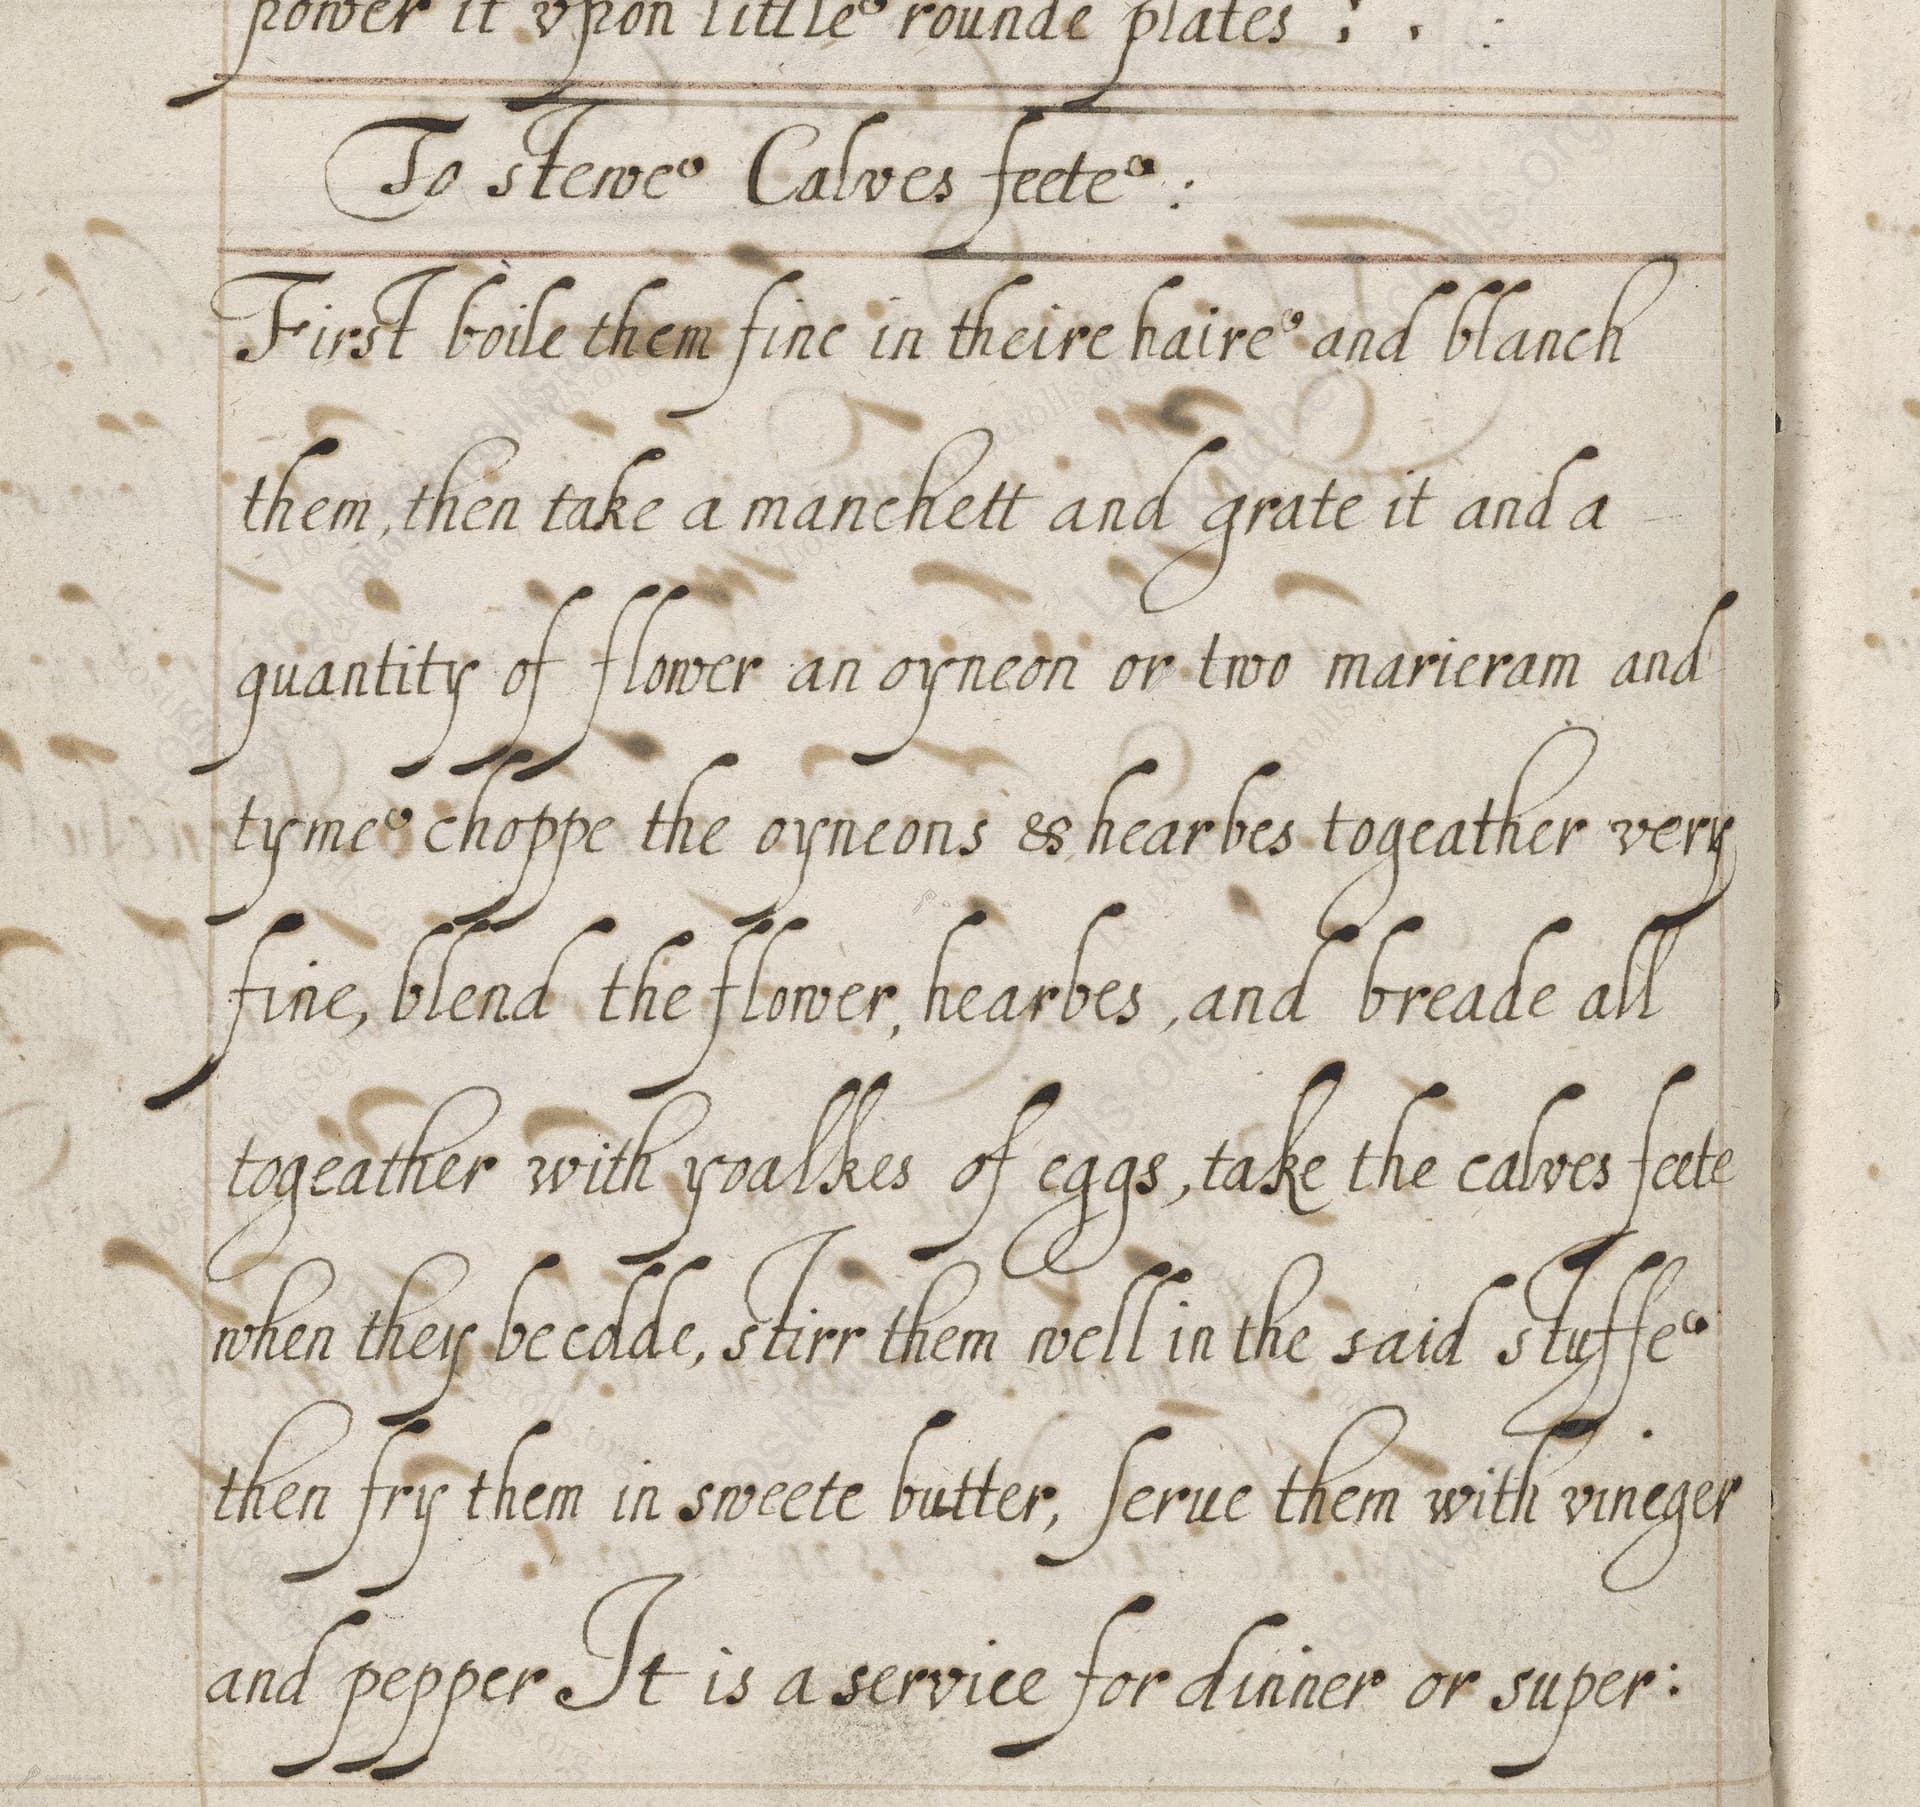 power it vpon little rounde plates : . :
To stewe Calves feete :
First boile them fine in theire haire and blanch
them, then take a manchett and grate it and a
quantity of flower an oyneon or two marieram and
tyme choppe the oyneons & hearbes togeather very
fine, blend the flower, hearbes, and breade all
togeather with yoalkes of eggs, take the calves feete
when they be colde, stirr them well in the said stuffe
then fry them in sweete butter, serue them with vineger
and pepper It is a service for dinner or super: